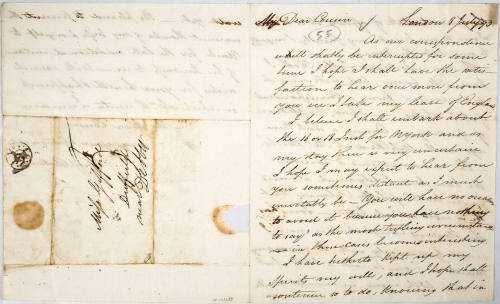 My Dear Cousin London 8 July 93
(55)
As our correspondence
will shortly be interrupted for some
time I hope I shall have the satis
faction to hear once more from
you ere I take my leave of England
I believe I shall embark about
the 16 or 18 Inst for N York and as
my stay there is very uncertain
I hope I may expect to hear from
you sometimes distant as I must
inevitably be - You will have no excuse
to avoid it because you have nothing
to say as the most trifling circumstance
in these cases becomes interesting
I have hitherto kept up my
spirits very well, and I hope shall
continue so to do, knowing that in
Miss Gifford
Duffield
near Derby